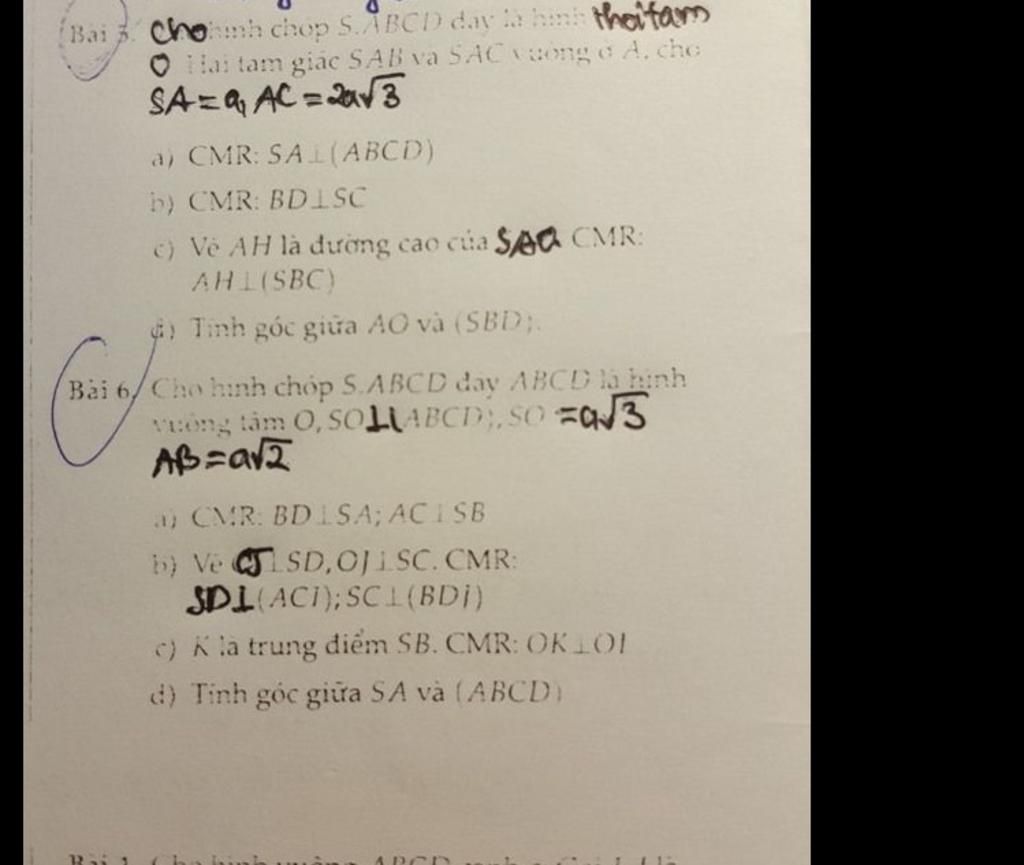 Bài 5. Cho hình chóp S.ABCD đáy là hình thoi tâm
O Hai tam giác SAB và SAC vuông ở A. cho
SA = a, AC = 2a√3
a) CMR: SA⊥(ABCD)
b) CMR: BD⊥SC
c) Vẽ AH là đường cao của SAO CMR:
AH⊥(SBC)
d) Tính góc giữa AO và (SBD).
Bài 6. Cho hình chóp S.ABCD đáy ABCD là hình
vuông tâm O, SO⊥(ABCD), SO = a√3
AB = a√2
a) CMR: BD⊥SA; AC⊥SB
b) Vẽ CJ⊥SD, OJ⊥SC. CMR:
SD⊥(ACI); SC⊥(BDJ)
c) K là trung điểm SB. CMR: OK⊥OI
d) Tính góc giữa SA và (ABCD)